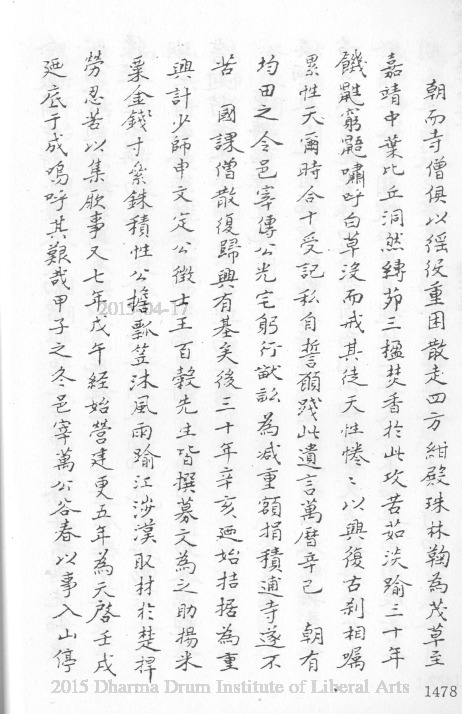 朝而寺僧俱以徭役重困散走四方紺殿珠林鞠為茂草至
嘉靖中葉比丘洞然縛茆三楹焚香於此攻苦茹淡踰三十年
饑鼯窮鼯嘯呼白草沒而戒其徒天性惓惓以興復古剎相囑
累性天爾時合十受記私自誓願踐此遺言萬曆辛己 朝有
均田之令邑宰傅公光宅躬行畝訟為減重額捐積逋寺遂不
苦 國課僧散復歸興有基矣後三十年辛亥迺始拮据為重
興計少師申文定公徵士王百穀先生皆撰募文為之助揚米
粟金錢寸絫銖積性公擔瓢笠沐風雨踰江涉漢取材於楚捍
勞忍苦以集厥事又七年戊午經始營建更五年為天啓壬戌
迺底于成嗚呼其艱哉甲子之冬邑宰萬公谷春以事入山停
2015-04-17
2015 Dharma Drum Institute of Liberal Arts
1478